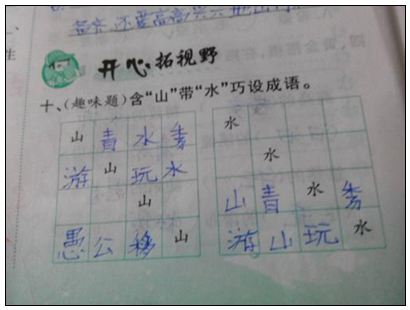 高高兴兴
生
开心拓视野
十、(趣味题)含“山”带“水”巧设成语。
山青水秀
游山玩水
山
愚公移山
水
水
山青水秀
游山玩水